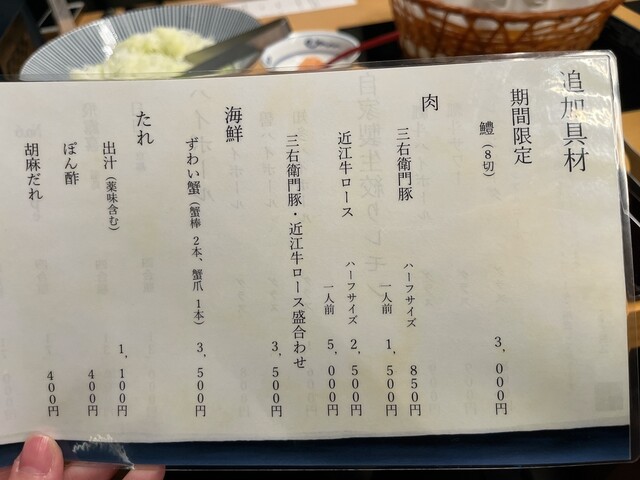 追加具材
期間限定
鱧（8切） 3,000円
肉
三右衛門豚 ハーフサイズ 850円
一人前 1,500円
近江牛ロース ハーフサイズ 2,500円
一人前 5,000円
三右衛門豚・近江牛ロース盛合わせ 3,500円
海鮮
ずわい蟹（蟹棒 2本、蟹爪 1本） 3,500円
たれ
出汁（薬味含む） 1,100円
ぽん酢 400円
胡麻だれ 400円